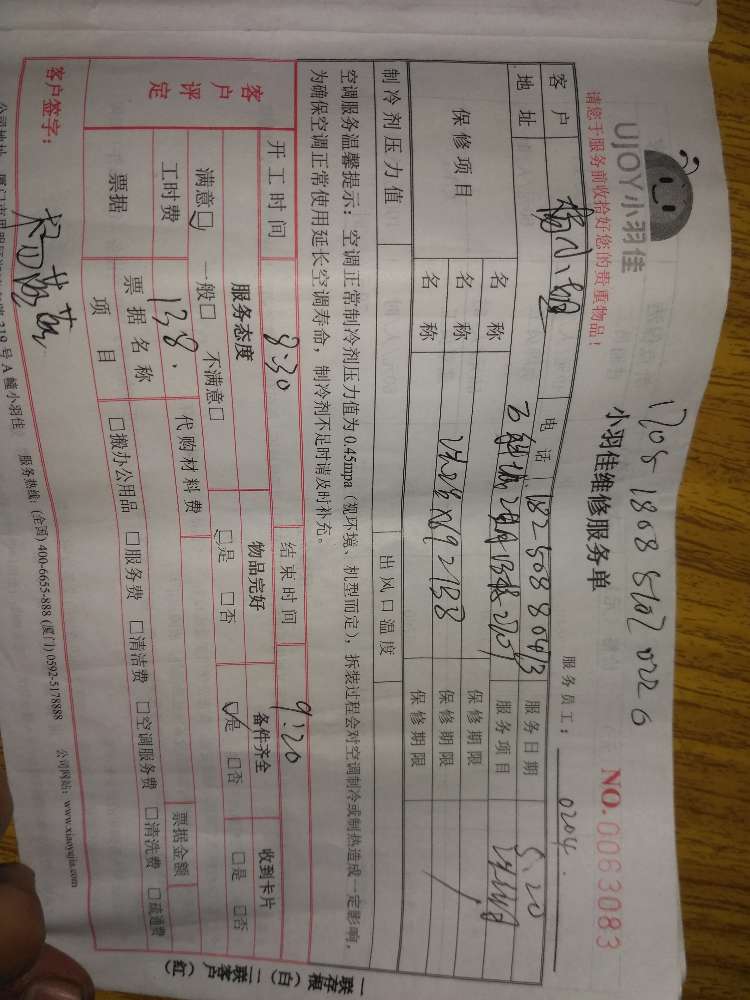 UJOY小羽佳
请您于服务前收拾好您的贵重物品！
小羽佳维修服务单
服务员工： 0204
NO.0063083
客户 杨小姐 电话 服务日期 5.20
地址 服务项目
保修项目 名称 保修期限
名称 保修期限
名称 保修期限
制冷剂压力值 出风口温度
空调服务温馨提示：空调正常制冷剂压力值为0.45mpa（视环境、机型而定），拆装过程会对空调制冷或制热造成一定影响，
为确保空调正常使用延长空调寿命，制冷剂不足时请及时补充。
客户评定 开工时间 8:30 结束时间 9:20
服务态度 物品完好 备件齐全 收到卡片
满意□ 一般□ 不满意□ □是 □否 □是 □否 □是 □否
工时费 138. 代购材料费
票据 票据名称 票据金额
项目 □搬办公用品 □服务费 □清洁费 □空调服务费 □清洗费 □疏通费
客户签字：
319号A幢小羽佳 服务热线：(全国) 400-6655-888 (厦门) 0592-5178888 公司网站：www.xiaoyujia.com
一联存根（白）二联客户（红）